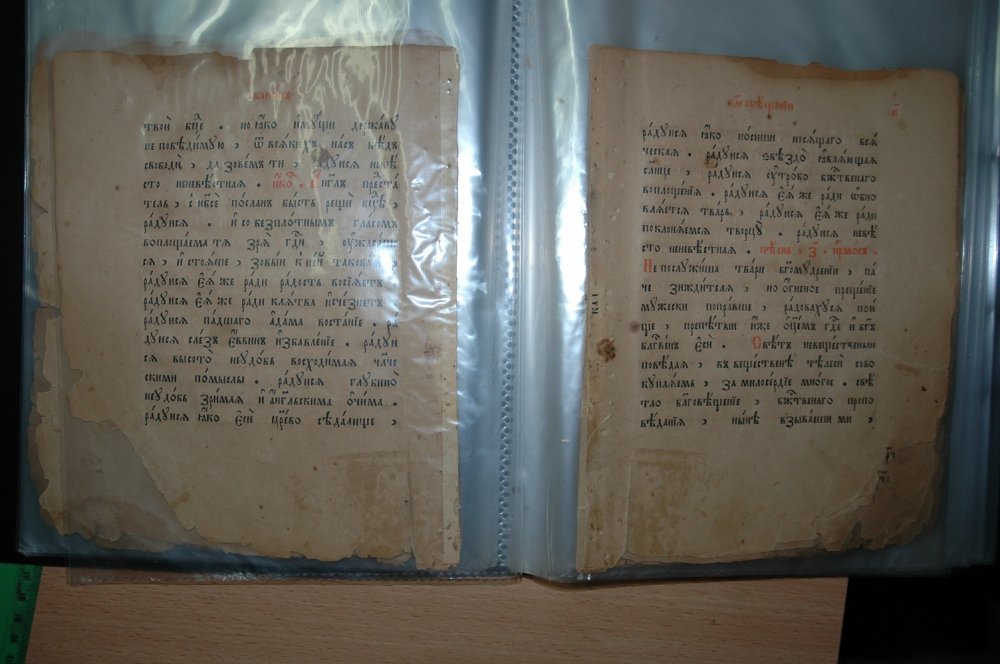 канонъ
твоѝ бц҃е . но ꙗ҆́ко и҆мꙋщи держа́вꙋ
не побѣди́мꙋю , ѿ всѧ́кихъ насъ бѣ́дъ
свободѝ , да зове́мъ ти , ра́дꙋисѧ невѣ́
сто неневѣ́стная . і҆́ко . а҆́нг҃лъ предста́
тель , с нб҃сѐ посланъ бысть рещи бц҃ѣ ,
ра́дꙋисѧ . и҆ со безпло́тнымъ гла́сомъ
воплоща́ема тѧ зрѧ̀ гд҇и , оу҆жаса́ше
сѧ , и҆ стоѧше , зовы́и к не́й такова́ѧ ,
ра́дꙋисѧ є҆ѧ́ же ра́ди ра́дость возсїѧ́етъ
ра́дꙋисѧ є҆ѧ́ же ра́ди клѧ́тва и҆сче́знетъ .
ра́дꙋисѧ па́дшаго а҆да́ма воста́нїе . ра́
дꙋисѧ сле́зъ є҆́ввинъ и҆збавле́нїе . ра́дꙋи
сѧ высото̀ неꙋдо́бь восходи́маѧ чл҃че
скими по́мыслы . ра́дꙋисѧ глꙋбино̀
неꙋдо́бь зри́маѧ и҆ а҆́нг҃льскима ѻ҆чи́ма .
ра́дꙋисѧ ꙗ҆́ко є҆сѝ цр҃ево сѣда́лище ,
бл҃говѣщенїю
ра́дꙋисѧ ꙗ҆́ко но́сиши носѧ́щаго всѧ́
ческаѧ . ра́дꙋисѧ ѕвѣздо̀ ꙗ҆влѧ́ющаѧ
сл҃нце , ра́дꙋисѧ оу҆тро́бо бж҃твенаго
воплоще́нїѧ . ра́дꙋисѧ є҆ѧ́ же ра́ди ѡ҆бно
влѧ́ется тва́рь , ра́дꙋисѧ є҆ѧ́ же ра́ди
поклонѧ́емсѧ творцꙋ̀ . ра́дꙋисѧ невѣ́
сто неневѣ́стная . пѣснь , з҃ . і҆рмосъ .
Не послꙋжи́ша тва́ри бг҃омꙋ́дренїи , па́
че зижди́телѧ , но ѻ҆́гненое преще́нїе
мꙋ́жески попра́вше , ра́довахꙋсѧ пою́
ще , препѣ́тыи и҆́же ѻ҆ц҃е́мъ гд҇ь и҆ бг҃ъ
бл҃гве́нъ є҆сѝ . Свѣ́тъ невеще́ственыи
повѣ́даѧ , въ веще́ственѣ тѣлесѝ сово
кꙋплѧ́емь , за милосе́рдїе мно́гое . свѣ́
тло бл҃говѣще́нїе , бж҃твенаго пропо
вѣ́данїѧ , ны́нѣ взыва́еши ми ,